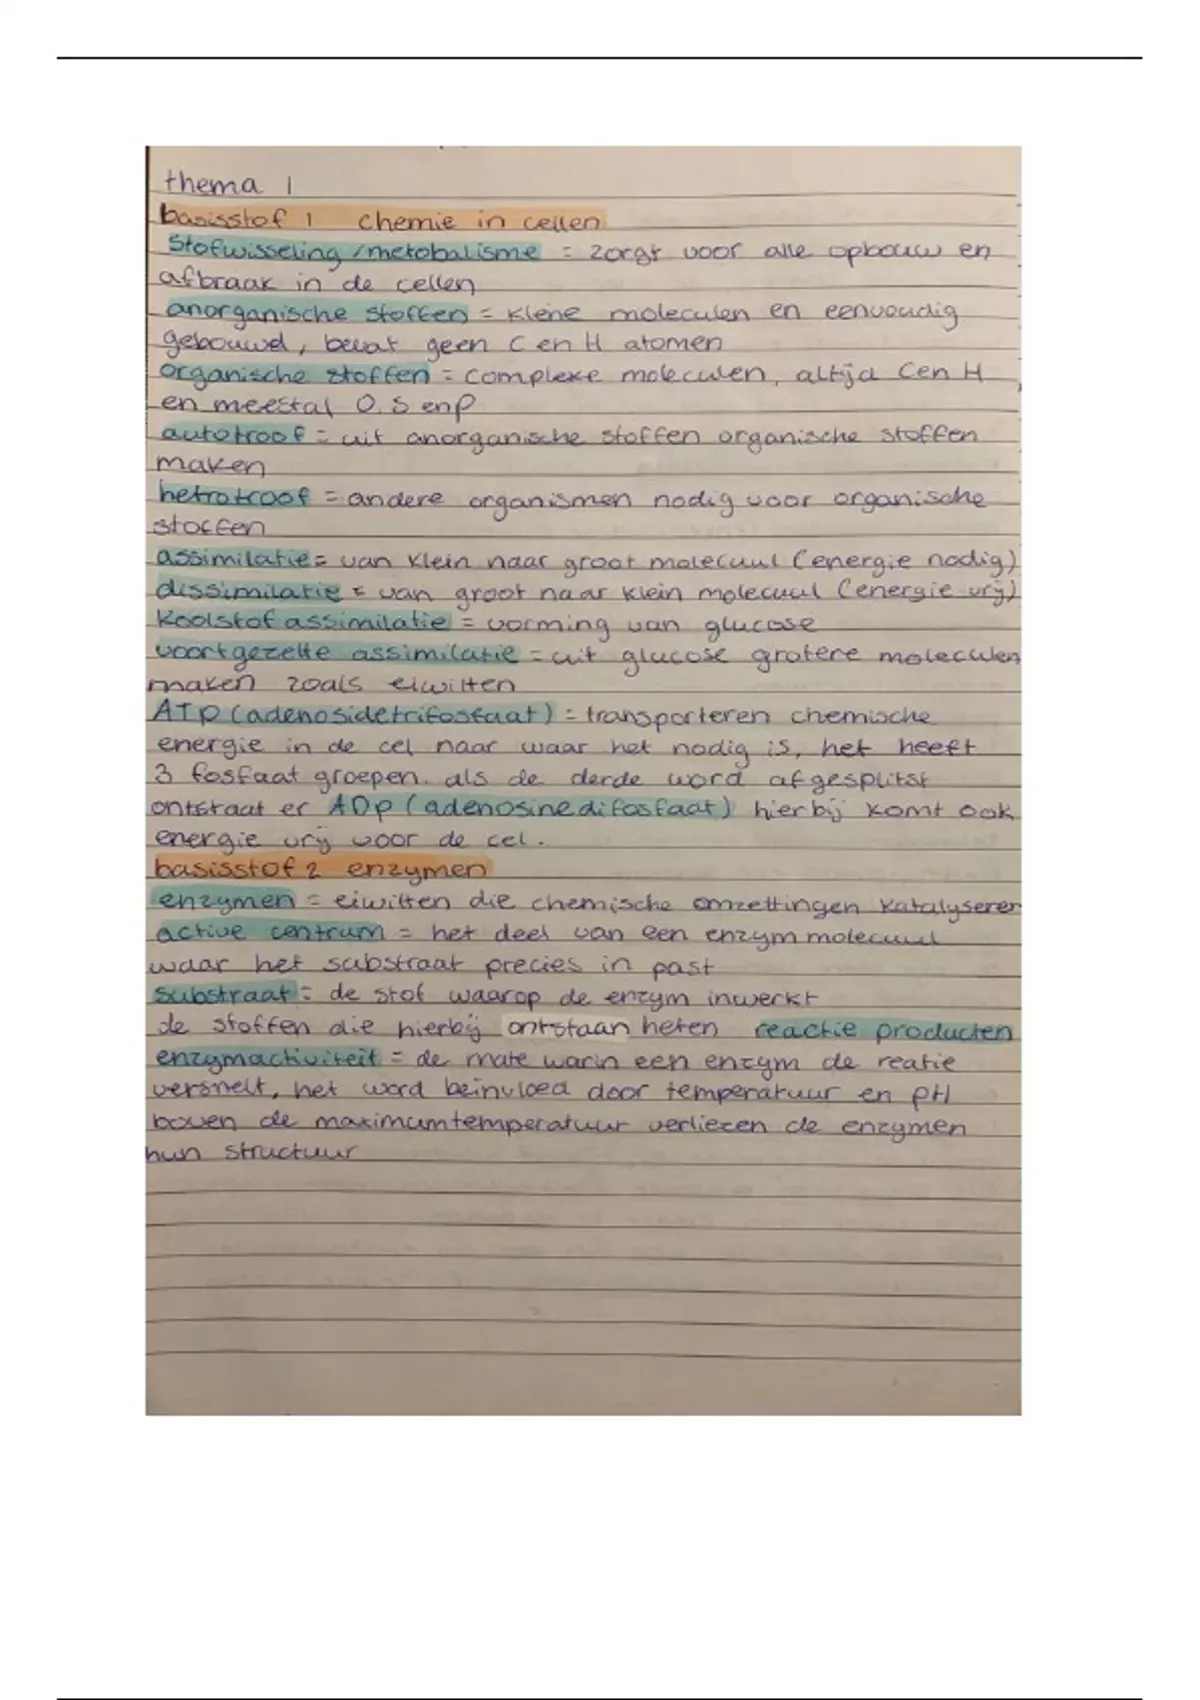 thema 1
basisstof 1 chemie in cellen
Stofwisseling/metobalisme = zorgt voor alle opbouw en
afbraak in de cellen
anorganische stoffen = kleine moleculen en eenvoudig
gebouwd, bevat geen C en H atomen
organische stoffen = complexe moleculen, altijd C en H
en meestal O, S en P
autotroof = uit anorganische stoffen organische stoffen
maken
hetrotroof = andere organismen nodig voor organische
stoffen
assimilatie = van klein naar groot molecuul (energie nodig)
dissimilatie = van groot naar klein molecuul (energie vrij)
Koolstof assimilatie = vorming van glucose
voortgezette assimilatie = uit glucose grotere moleculen
maken zoals eiwitten
ATP (adenosidetrifosfaat) = transporteren chemische
energie in de cel naar waar het nodig is, het heeft
3 fosfaat groepen. als de derde word afgesplitst
ontstaat er ADP (adenosinedifosfaat) hierbij komt ook
energie vrij voor de cel.
basisstof 2 enzymen
enzymen = eiwitten die chemische omzettingen katalyseren
active centrum = het deel van een enzym molecuul
waar het substraat precies in past
substraat = de stof waarop de enzym inwerkt
de stoffen die hierbij ontstaan heten reactie producten
enzymactiviteit = de mate warin een enzym de reatie
versnelt, het word beïnvloed door temperatuur en pH
boven de maximumtemperatuur verliezen de enzymen
hun structuur